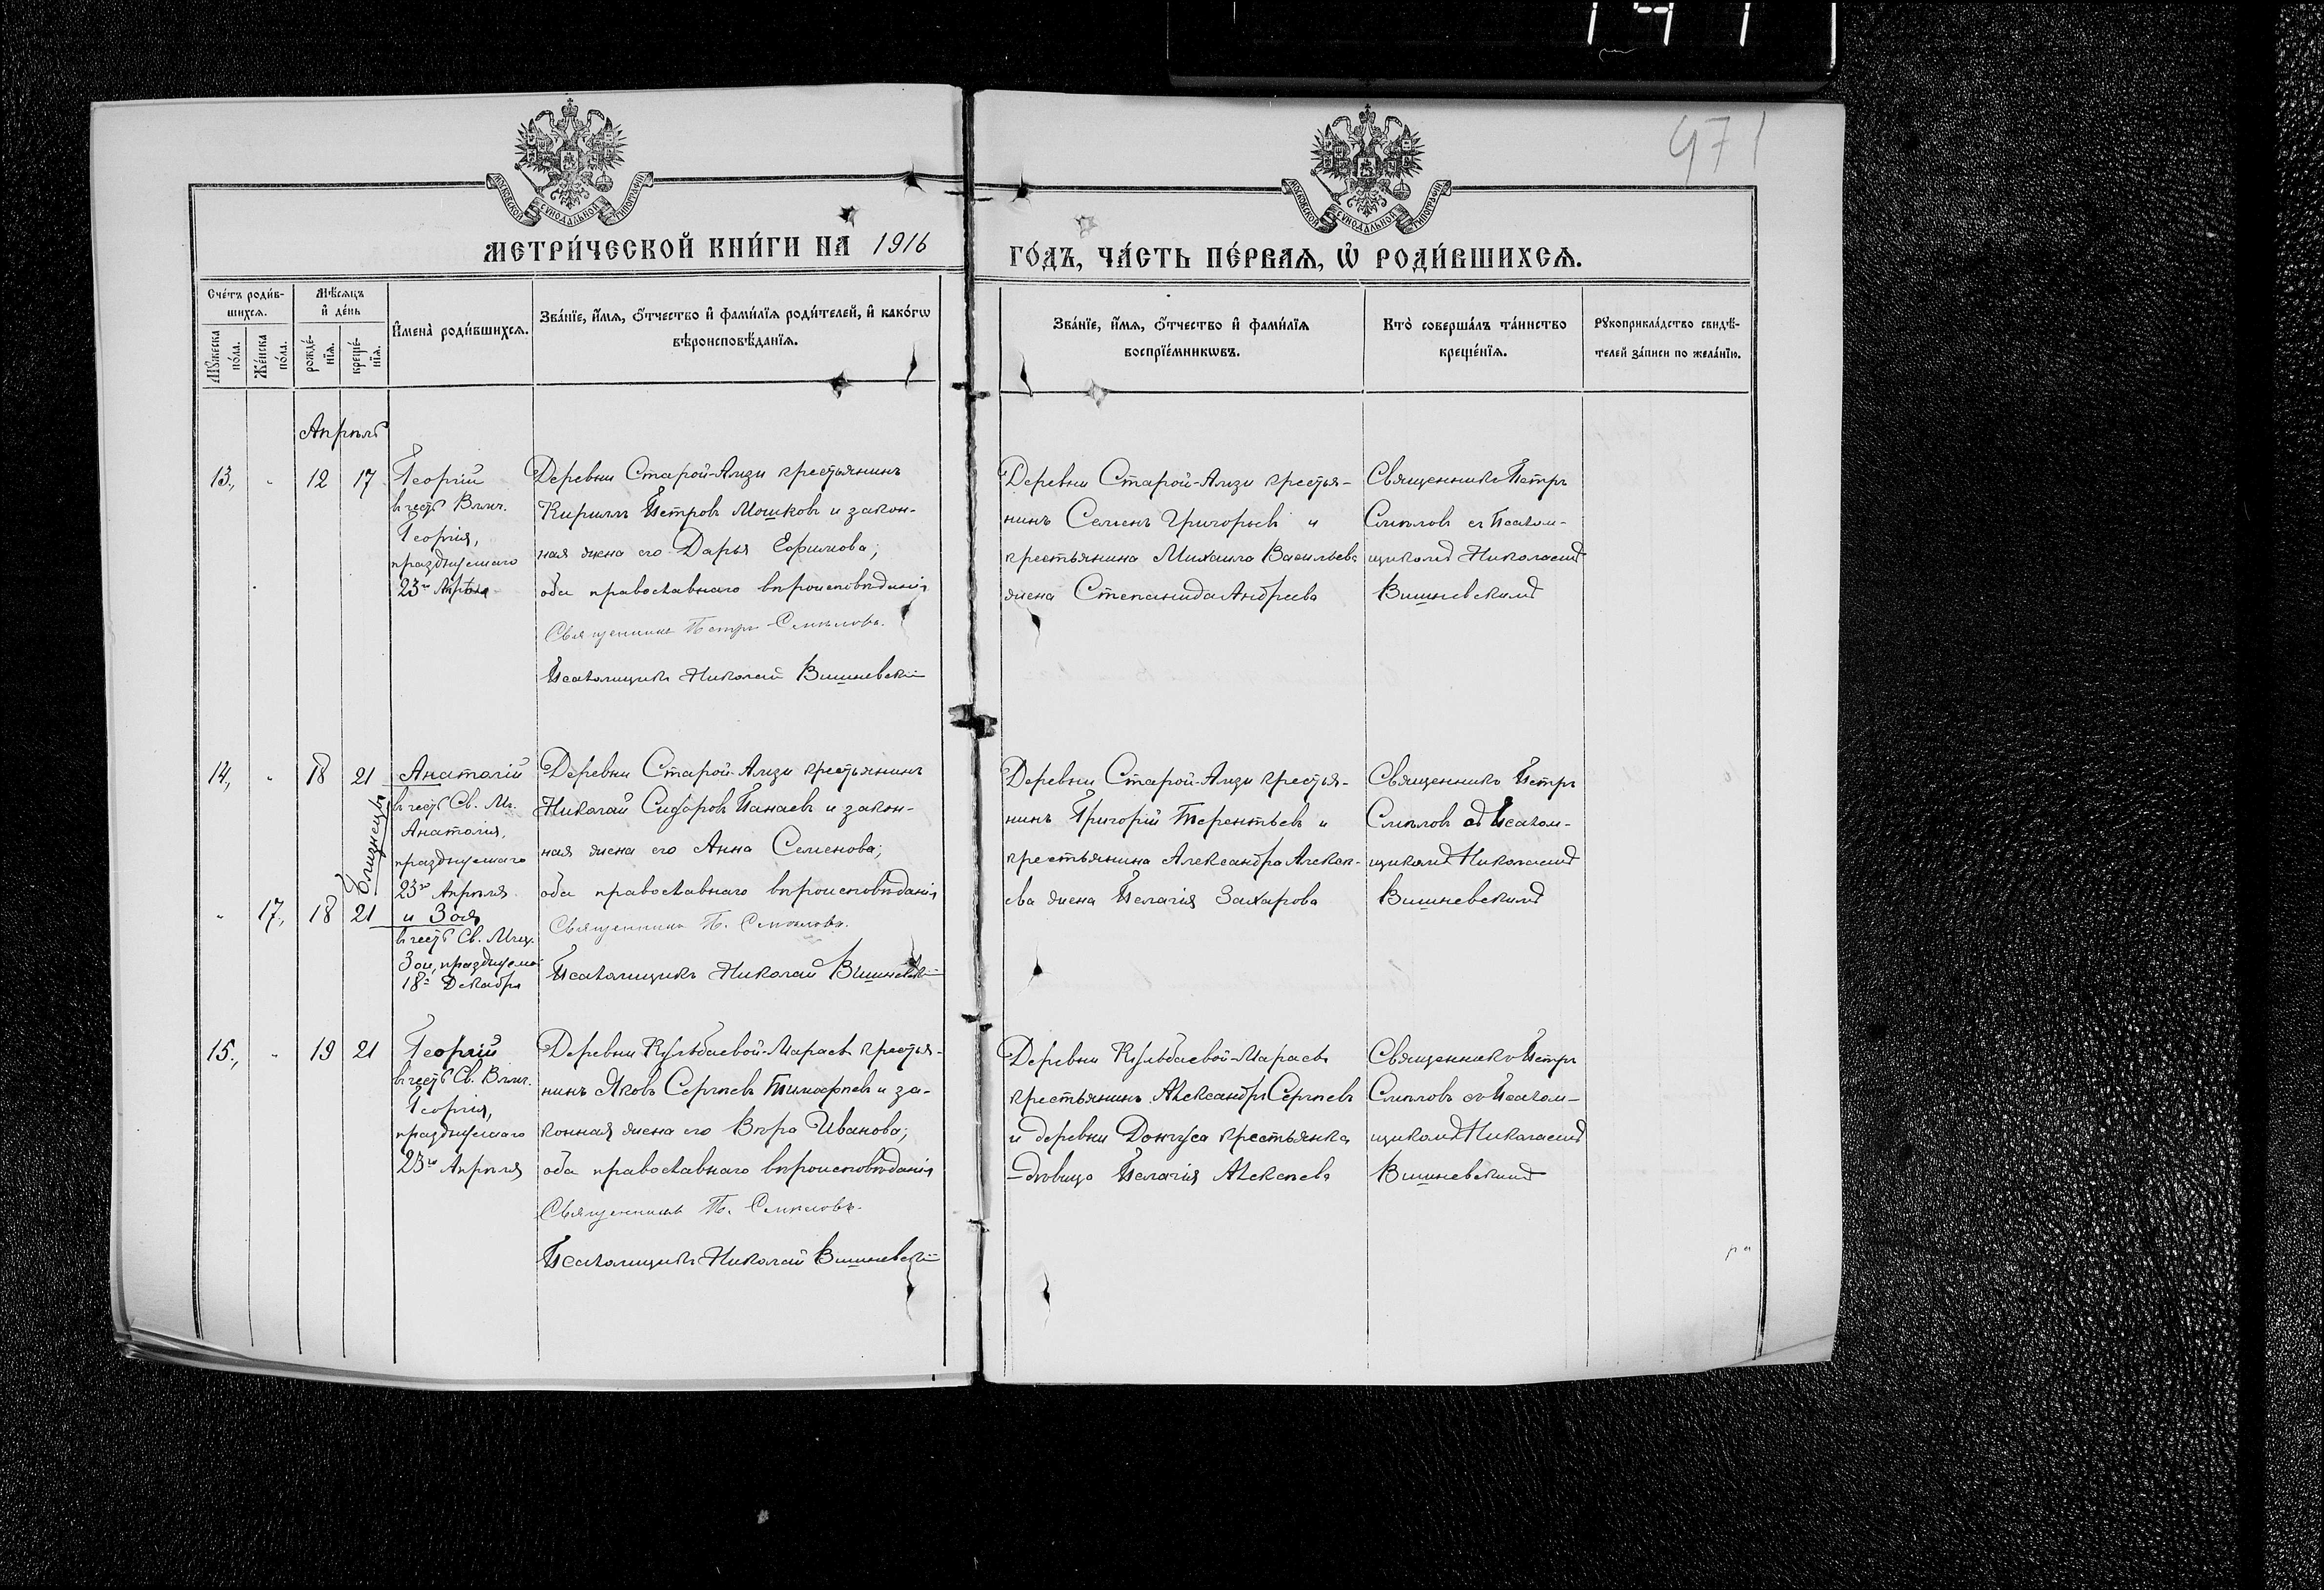 471
МОСКОВСКОЙ СѴНОДАЛЬНОЙ ТИПОГРАФІИ
МОСКОВСКОЙ СѴНОДАЛЬНОЙ ТИПОГРАФІИ
МЕТРИ́ЧЕСКОЙ КНИ́ГИ НА 1916
ГО́ДЪ, ЧА́СТЬ ПЕ́РВАѦ, Ѡ҆ РОДИ́ВШИХСѦ.
Сче́тъ роди́в-
шихсѧ.
Мꙋ́жеска
по́ла.
Же́нска
по́ла.
Мѣ́сѧцъ
и҆ де́нь
рожде́-
нїѧ.
креще́-
нїѧ.
И҆мена̀ роди́вшихсѧ.
Зва́нїе, и҆́мѧ, ѻ҆́тчество и҆ фами́лїѧ роди́телей, и҆ како́гѡ
вѣроисповѣ́данїѧ.
Зва́нїе, и҆́мѧ, ѻ҆́тчество и҆ фами́лїѧ
воспрїе́мникѡвъ.
Кто̀ соверша́лъ та́инство
креще́нїѧ.
Рꙋкоприкла́дство свидѣ́-
телей за́писи по жела́нїю.
Апрѣль
13., " 12 17
Георгій
въ честь Влмч.
Георгія,
празднуемаго
23го Апрѣля
Деревни Старой-Ализи крестьянинъ
Кириллъ Петровъ Мошковъ и закон-
ная жена его Дарья Ефимова;
оба православнаго вѣроисповѣданія
Священникъ Петръ Смѣловъ.
Псаломщикъ Николай Вишневскій
Деревни Старой-Ализи крестья-
нинъ Семенъ Григорьевъ и
крестьянина Михаила Васильева
жена Степанида Андреева
Священникъ Петръ
Смѣловъ съ Псалом-
щикомъ Николаемъ
Вишневскимъ
14., " 18 21
Близнецы
Анатолій
въ честь Св. Мч.
Анатолія,
празднуемаго
23го Апрѣля
" 17, 18 21
и Зоя
въ честь Св. Мчц.
Зои, празднуемой
18го Декабря
Деревни Старой-Ализи крестьянинъ
Николай Сидоровъ Панаевъ и закон-
ная жена его Анна Семенова;
оба православнаго вѣроисповѣданія
Священникъ П. Смѣловъ.
Псаломщикъ Николай Вишневскій
Деревни Старой-Ализи крестья-
нинъ Григорій Терентьевъ и
крестьянина Александра Алексѣ-
ева жена Пелагія Захарова
Священникъ Петръ
Смѣловъ съ Псалом-
щикомъ Николаемъ
Вишневскимъ
15., " 19 21
Георгій
въ честь Св. Влмч.
Георгія,
празднуемаго
23го Апрѣля
Деревни Кульбаевой-Мараевъ крестья-
нинъ Яковъ Сергѣевъ Тимофѣевъ и за-
конная жена его Вѣра Иванова;
оба православнаго вѣроисповѣданія
Священникъ П. Смѣловъ.
Псаломщикъ Николай Вишневскій
Деревни Кульбаевой-Мараевъ
крестьянинъ Александръ Сергѣевъ
и деревни Донгуса крестьянка
-дѣвица Пелагія Алексѣева
Священникъ Петръ
Смѣловъ съ Псалом-
щикомъ Николаемъ
Вишневскимъ